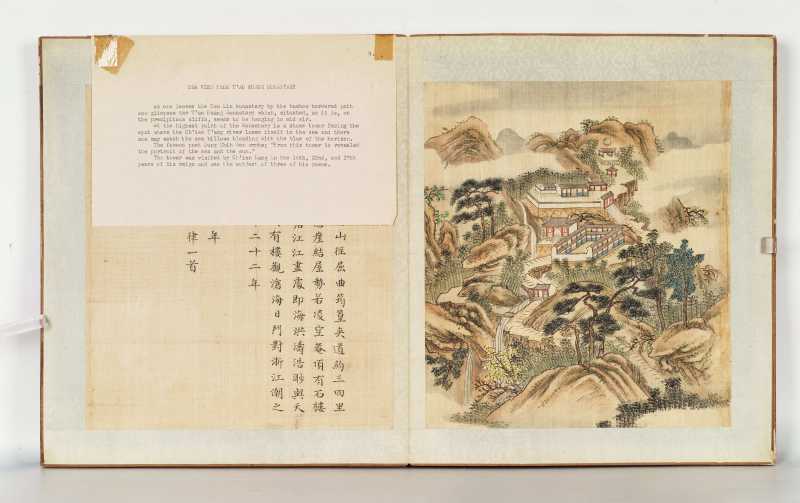 THE VIEW FROM T'AO KUANG MONASTARY
As one leaves the Yun Lin monastery by the bamboo bordered path
one glimpses the T'ao Kuang monastery which, situated, as it is, on
the precipitous cliffs, seems to be hanging in mid air.
At the highest point of the Monastery is a stone tower facing the
spot where the Ch'ien T'ang river loses itself in the sea and there
one may watch the sea billows blending with the blue of the horizon.
The famous poet Sung Chih Wen wrote; "From this tower is revealed
the portrait of the sea and the sun."
The tower was visited by Ch'ien Lung in the 16th, 22nd, and 27th
years of his reign and was the subject of three of his poems.
山徑屈曲筠篁夾道約三四里
崖結屋勢若凌空菴頂有石樓
江江盡處即海洪濤浩渺與天
有樓觀滄海日門對浙江潮之
二十二年
年
律一首